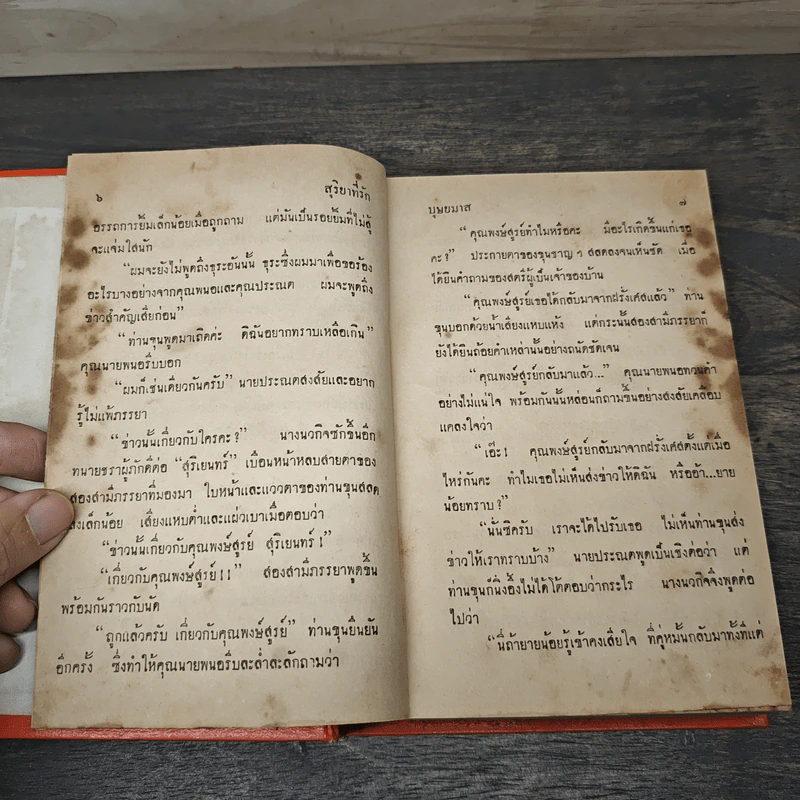 ๖
สุริยาที่รัก
อรรถการยิ้มเล็กน้อยเมื่อถูกถาม แต่มันเป็นรอยยิ้มที่ไม่สู้
จะแจ่มใสนัก
“ผมจะยังไม่พูดถึงธุระอันนั้น ธุระซึ่งผมมาเพื่อขอร้อง
อะไรบางอย่างจากคุณพนอและคุณประณต ผมจะพูดถึง
ข่าวสำคัญเสียก่อน”
“ท่านขุนพูดมาเถิดค่ะ ดิฉันอยากทราบเหลือเกิน”
คุณนายพนอรีบบอก
“ผมก็เช่นเดียวกันครับ” นายประณตสงสัยและอยาก
รู้ไม่แพ้ภรรยา
“ข่าวนั้นเกี่ยวกับใครคะ?” นางนวกิจซักขึ้นอีก
ทนายชราผู้ภักดีต่อ “สุริเยนทร์” เบือนหน้าหลบสายตาของ
สองสามีภรรยาที่มองมา ใบหน้าและแววตาของท่านขุนสลด
ลงเล็กน้อย เสียงแหบต่ำและแผ่วเบาเมื่อตอบว่า
“ข่าวนั้นเกี่ยวกับคุณพงษ์สูรย์ สุริเยนทร์!”
“เกี่ยวกับคุณพงษ์สูรย์!!” สองสามีภรรยาพูดขึ้น
พร้อมกันราวกับนัด
“ถูกแล้วครับ เกี่ยวกับคุณพงษ์สูรย์” ท่านขุนยืนยัน
อีกครั้ง ซึ่งทำให้คุณนายพนอรีบละล่ำละลักถามว่า
บุษยมาส
๗
“คุณพงษ์สูรย์ทำไมหรือคะ มีอะไรเกิดขึ้นแก่เธอ
คะ?” ประกายตาของขุนชาญ ๆ สลดลงจนเห็นชัด เมื่อ
ได้ยินคำถามของสตรีผู้เป็นเจ้าของบ้าน
“คุณพงษ์สูรย์เธอได้กลับมาจากฝรั่งเศสแล้ว” ท่าน
ขุนบอกด้วยน้ำเสียงแหบแห้ง แต่กระนั้นสองสามีภรรยาก็
ยังได้ยินถ้อยคำเหล่านั้นอย่างถนัดชัดเจน
“คุณพงษ์สูรย์กลับมาแล้ว...” คุณนายพนอทวนคำ
อย่างไม่แน่ใจ พร้อมกันนั้นหล่อนก็ถามขึ้นอย่างสงสัยเคลือบ
แคลงใจว่า
“เอ๊ะ! คุณพงษ์สูรย์กลับมาจากฝรั่งเศสตั้งแต่เมื่อ
ไหร่กันคะ ทำไมเธอไม่เห็นส่งข่าวให้ดิฉัน หรืออ้า...ยาย
น้อยทราบ?”
“นั่นซิครับ เราจะได้ไปรับเธอ ไม่เห็นท่านขุนส่ง
ข่าวให้เราทราบบ้าง” นายประณตพูดเป็นเชิงต่อว่า แต่
ท่านขุนก็นิ่งอึ้งไม่ได้โต้ตอบว่ากระไร นางนวกิจจึงพูดต่อ
ไปว่า
“นี่ถ้ายายน้อยรู้เข้าคงเสียใจ ที่คู่หมั้นกลับมาทั้งทีแต่